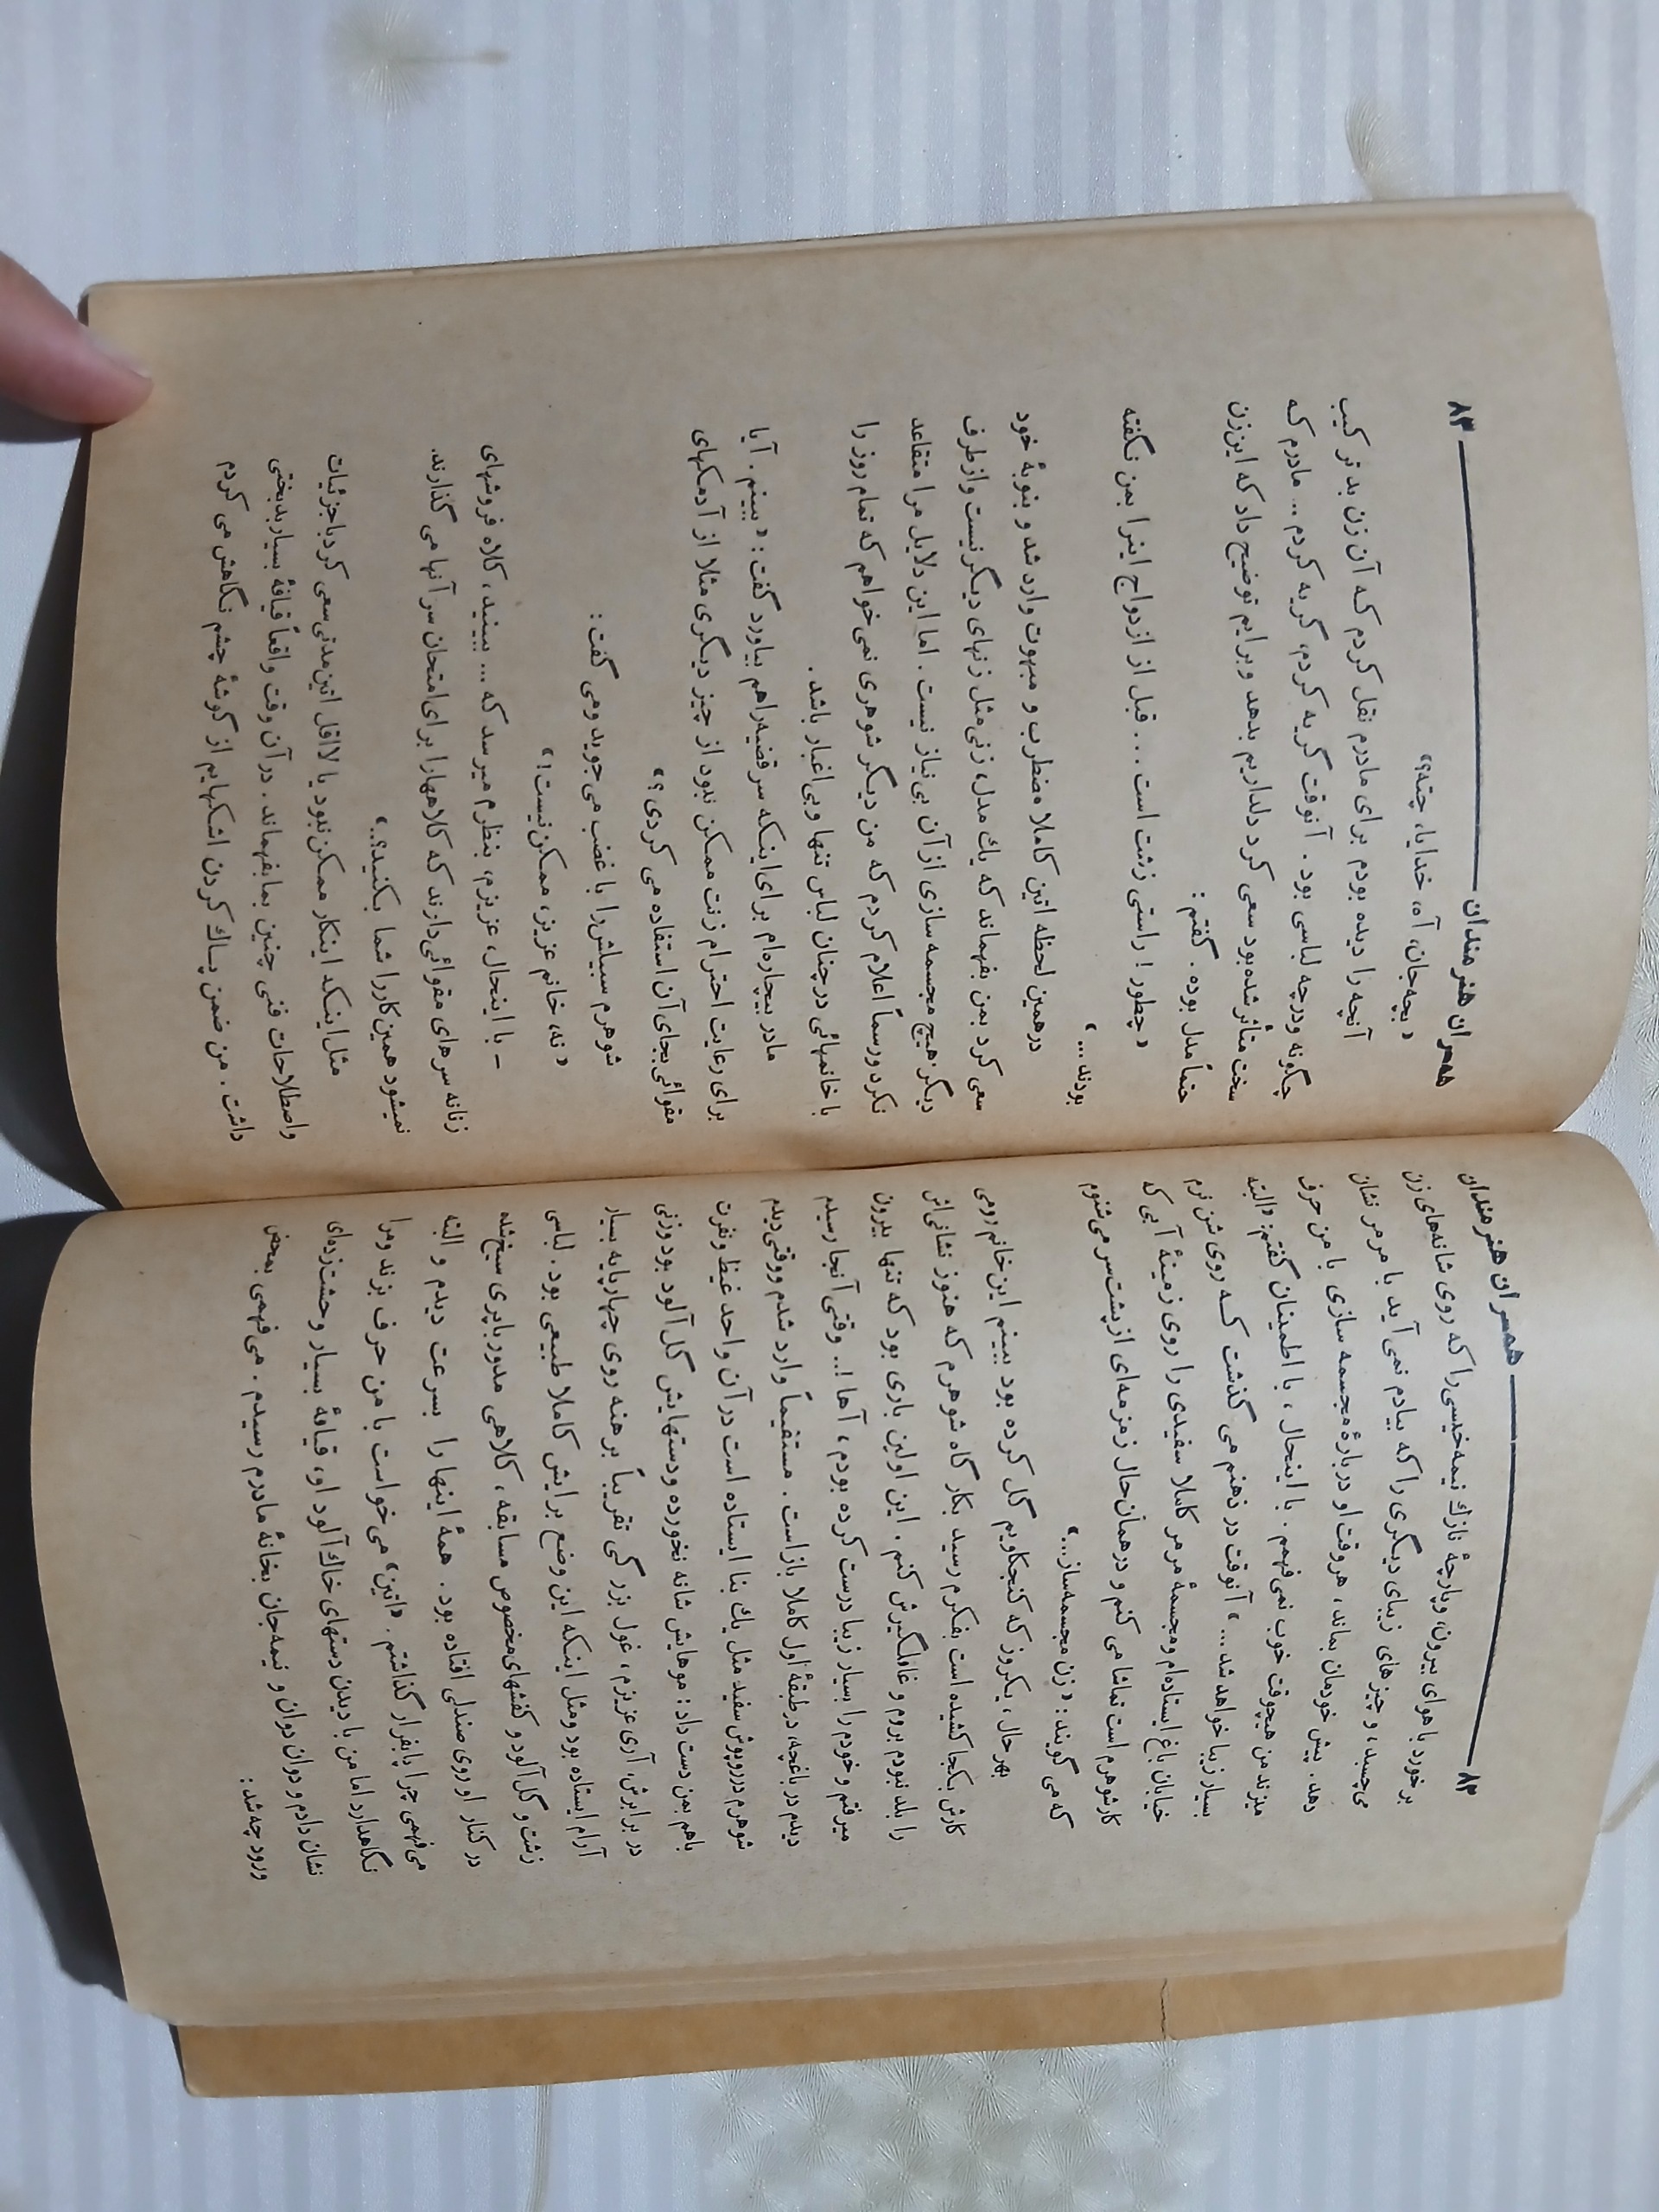 ۸۲ همسران هنرمندان
برخورد باهوای بیرون، وپارچهٔ نازک نیمه‌خیسی‌را که روی شانه‌های زن
می‌چسبد، و چیزهای زیبای دیگری راکه بیادم نمی‌آید با مرمر نشان
دهد. پیش خودمان بماند، هروقت او دربارهٔ مجسمه سازی با من حرف
میزند من هیچوقت خوب نمی‌فهمم. با اینحال، با اطمینان گفتم: «البته
بسیار زیبا خواهد شد...» آنوقت در ذهنم می گذشت کـه روی شن نرم
خیابان باغ ایستاده‌ام ومجسمهٔ مرمر کاملا سفیدی را روی زمینهٔ آبی که
کارشوهرم است تماشا می کنم و درهمان‌حال زمزمه‌ای ازپشت‌سر می‌شنوم
که می گویند: «زن مجسمه‌ساز...»
بهرحال، یکروز که کنجکاویم گل کرده بود ببینم این‌خانم رومی
کارش بکجا کشیده است بفکرم رسید بکارگاه شوهرم که هنوز نشانی‌اش
را بلد نبودم بروم و غافلگیرش کنم. این اولین باری بود که تنها بیرون
میرفتم و خودم را بسیار زیبا درست کرده بودم، آها!.. وقتی آنجا رسیدم
دیدم در باغچه، درطبقهٔ اول کاملا باز است. مستقیماً وارد شدم ووقتی دیدم
شوهرم درروپوش سفید مثل یک بنا ایستاده است در آن واحد غیظ و نفرت
باهم بمن دست داد: موهایش شانه نخورده ودستهایش گل آلود بود وزنی
در برابرش، آری عزیزم، غول بزرگی تقریباً برهنه روی چهارپایه بسیار
آرام ایستاده بود ومثل اینکه این وضع برایش کاملا طبیعی بود. لباسی
زشت و گل‌آلود و کفشهای مخصوص مسابقه، کلاهی مدور باپری سیخ‌شده
در کنار او روی صندلی افتاده بود. همهٔ اینها را بسرعت دیدم و البته
می‌فهمی چرا پابفرار گذاشتم. «اتین» می‌خواست با من حرف بزند ومرا
نگاهدارد اما من با دیدن دستهای خاک‌آلود او، قیافهٔ بسیار وحشت‌زده‌ای
نشان دادم و دوان دوان و نیمه‌جان بخانهٔ مادرم رسیدم. می‌فهمی بمحض
ورود چه شد:
همسران هنرمندان ۸۳
«بچه‌جان، آه، خدایا، چته؟»
آنچه را دیده بودم برای مادرم نقل کردم کـه آن زن بد ترکیب
چگونه ودرچه لباسی بود. آنوقت گریه کردم، گریه کردم... مادرم که
سخت متأثر شده‌بود سعی کرد دلداریم بدهد وبرایم توضیح داد که این‌زن
حتماً مدل بوده. گفتم:
«چطور! راستی زشت است ... قبل از ازدواج اینرا بمن نگفته
بودند...»
درهمین لحظه اتین کاملا مضطرب و مبهوت وارد شد و بنوبهٔ خود
سعی کرد بمن بفهماند که یک مدل، زنی‌مثل زنهای دیگرنیست وازطرف
دیگر هیچ مجسمه‌سازی از آن بی‌نیاز نیست. اما این دلایل مرا متقاعد
نکرد ورسماً اعلام کردم که من دیگر شوهری نمی‌خواهم که تمام روز را
با خانمهائی درچنان لباس تنها وبی‌اغیار باشد.
مادر بیچاره‌ام برای اینکه سرقضیه‌راهم بیاورد گفت: «ببینم. آیا
برای رعایت احترام زنت ممکن نبود از چیز دیگری مثلا از آدمکهای
مقوائی بجای آن استفاده می کردی؟»
شوهرم سبیلش‌را با غضب می‌جوید ومی گفت:
«نه، خانم عزیز، ممکن‌نیست!»
– با اینحال، عزیزم، بنظرم میرسد که... ببینید، کلاه فروشهای
زنانه سرهای مقوائی‌دارند که کلاهها را برای امتحان سر آنها می گذارند.
نمیشود همین کاررا شما بکنید؟..»
مثل اینکه اینکار ممکن‌نبود یا لااقل اتین‌مدتی سعی کرد باجزئیات
واصطلاحات فنی چنین بما بفهماند. در آن وقت واقعاً قیافهٔ بسیاربدبختی
داشت. من ضمن پـاک کردن اشکهایم از گوشهٔ چشم نگاهش می کردم